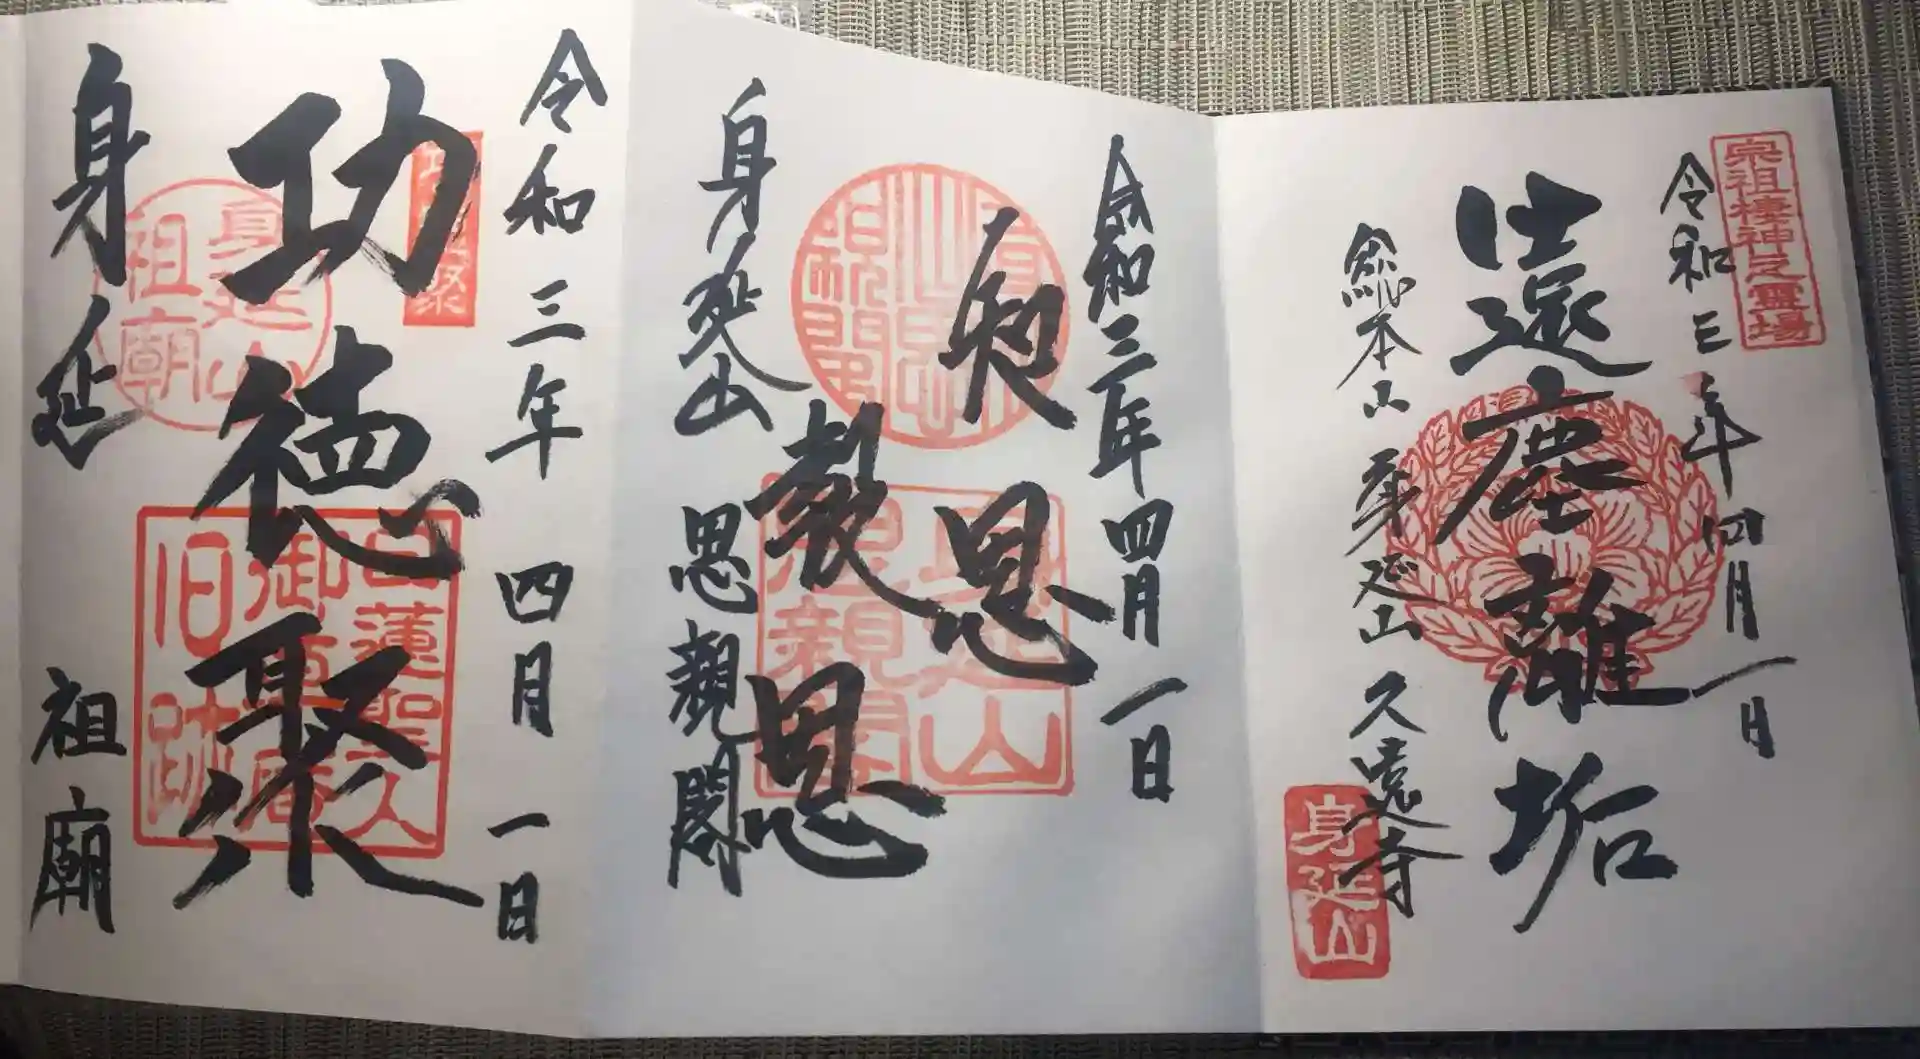 宗祖棲神之霊場
令和三年四月一日
遠塵離垢
総本山身延山久遠寺
身延山
令和三年四月一日
知恩
報恩
身延山思親閣
令和三年四月一日
功徳聚
功徳聚
身延山祖廟
日蓮聖人御草庵旧跡
身延祖廟